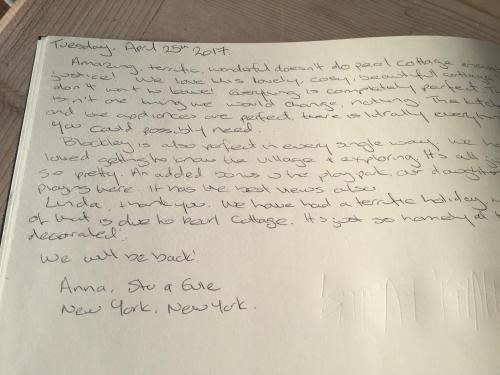 Tuesday, April 25th 2017.
Amazing, terrific, wonderful doesn't do pearl cottage enough
justice! We love this lovely, cosy, beautiful cottage
don't want to leave! Everything is completely perfect. T
isn't one thing we would change, nothing. The kitch
and the appliances are perfect, there is litrally every
you could possibly need.
Blockley is also perfect in every single way. We ha
loved getting to know the village & exploring. It's all ju
so pretty. An added bonus is the play park, our daughter
playing here. It has the best views also.
Linda, thankyou. We have had a terrific holiday, m
of that is due to Pearl Cottage. It's just so homely &
decorated.
We will be back!
Anna, Stu & Evie
New York, New York.